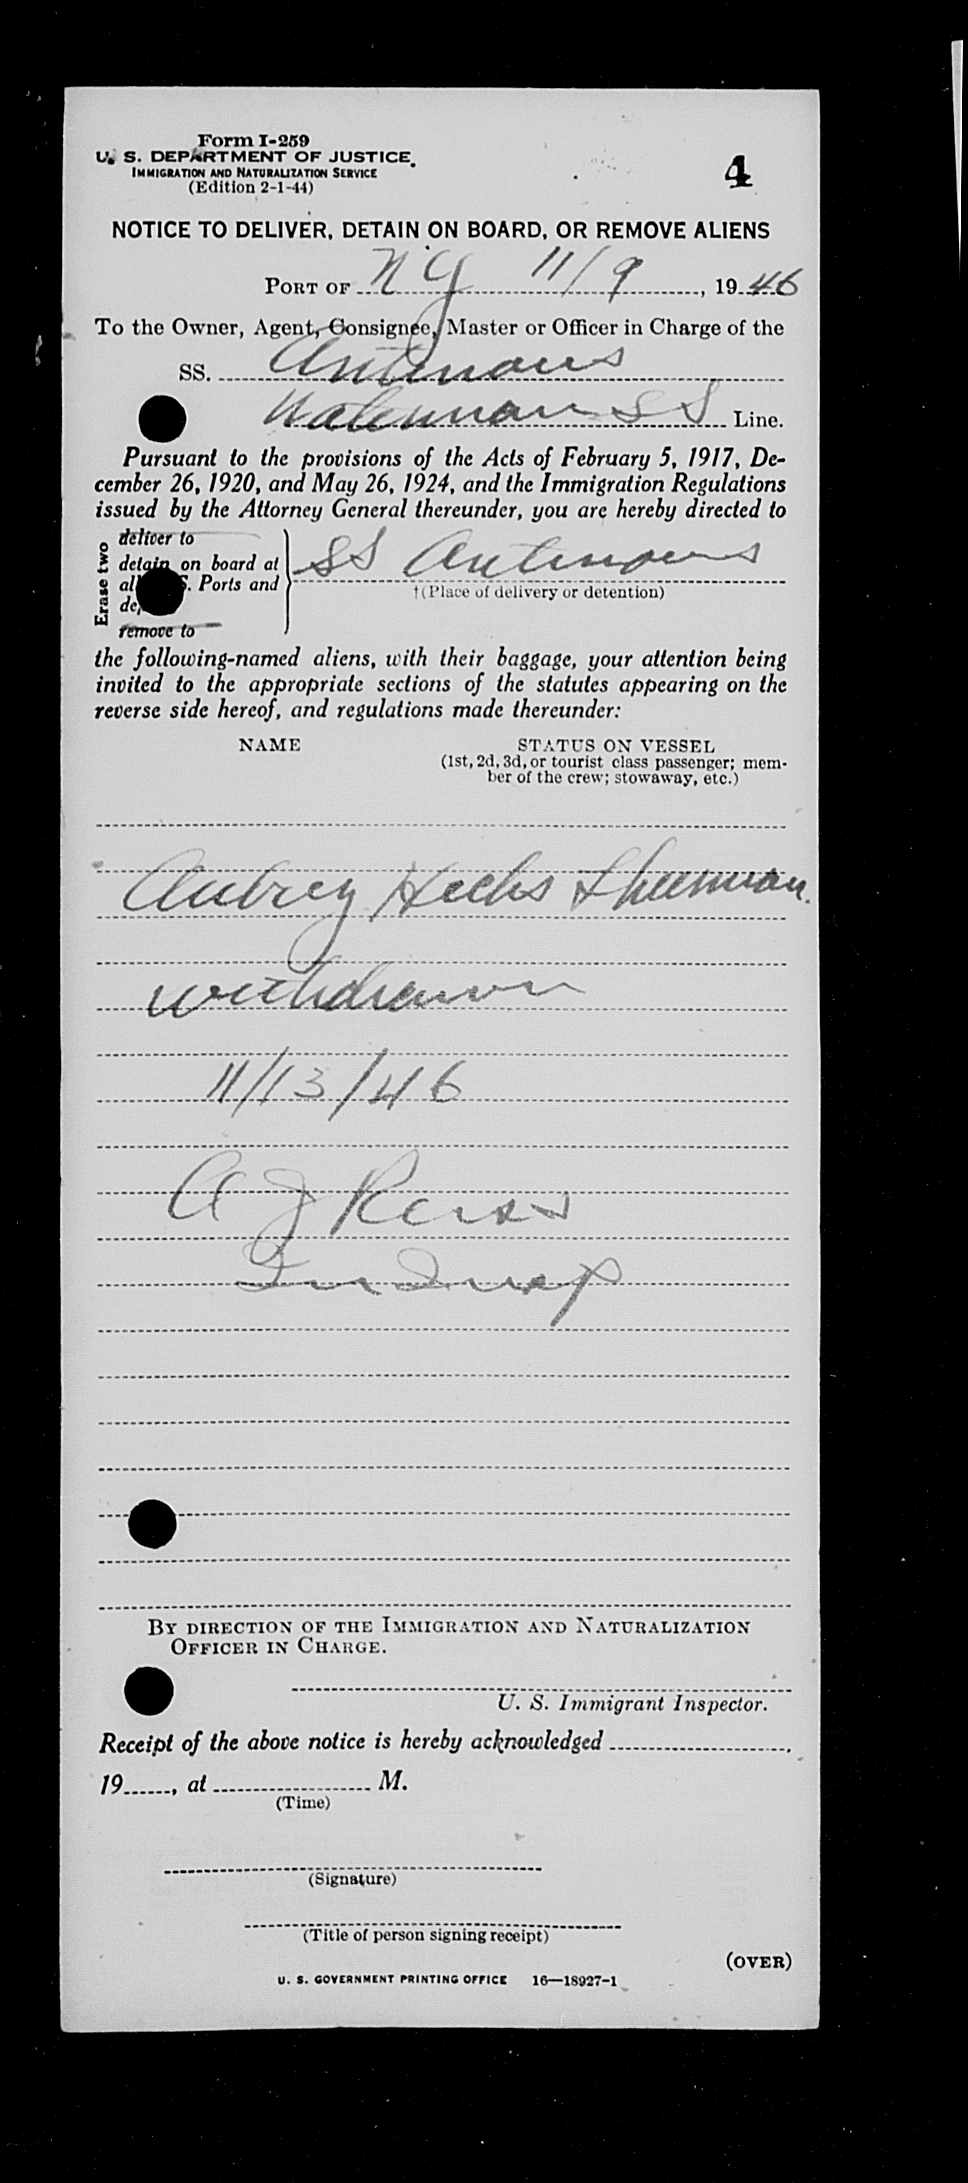 Form I-259
U. S. DEPARTMENT OF JUSTICE
IMMIGRATION AND NATURALIZATION SERVICE
(Edition 2-1-44)
4
NOTICE TO DELIVER, DETAIN ON BOARD, OR REMOVE ALIENS
PORT OF N Y 11/9, 1946
To the Owner, Agent, Consignee, Master or Officer in Charge of the
SS. Antinous
Waterman SS Line.
Pursuant to the provisions of the Acts of February 5, 1917, De-
cember 26, 1920, and May 26, 1924, and the Immigration Regulations
issued by the Attorney General thereunder, you are hereby directed to
Erase two
deliver to
detain on board at
all S. Ports and
remove to
SS Antinous
†(Place of delivery or detention)
the following-named aliens, with their baggage, your attention being
invited to the appropriate sections of the statutes appearing on the
reverse side hereof, and regulations made thereunder:
NAME
STATUS ON VESSEL
(1st, 2d, 3d, or tourist class passenger; mem-
ber of the crew; stowaway, etc.)
Aubrey Hecks Sherman
withdrawn
11/13/46
A J Reiss
Im Insp
BY DIRECTION OF THE IMMIGRATION AND NATURALIZATION
OFFICER IN CHARGE.
U. S. Immigrant Inspector.
Receipt of the above notice is hereby acknowledged
19 , at M.
(Time)
(Signature)
(Title of person signing receipt)
(OVER)
U. S. GOVERNMENT PRINTING OFFICE 16—18927-1